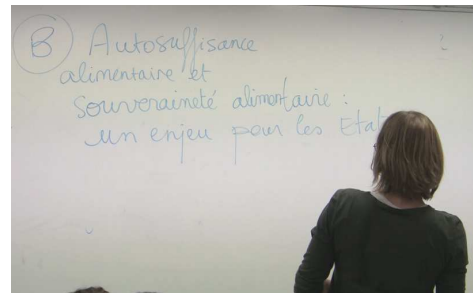 B Autosuffisance
alimentaire et
souveraineté alimentaire :
un enjeu pour les Etat